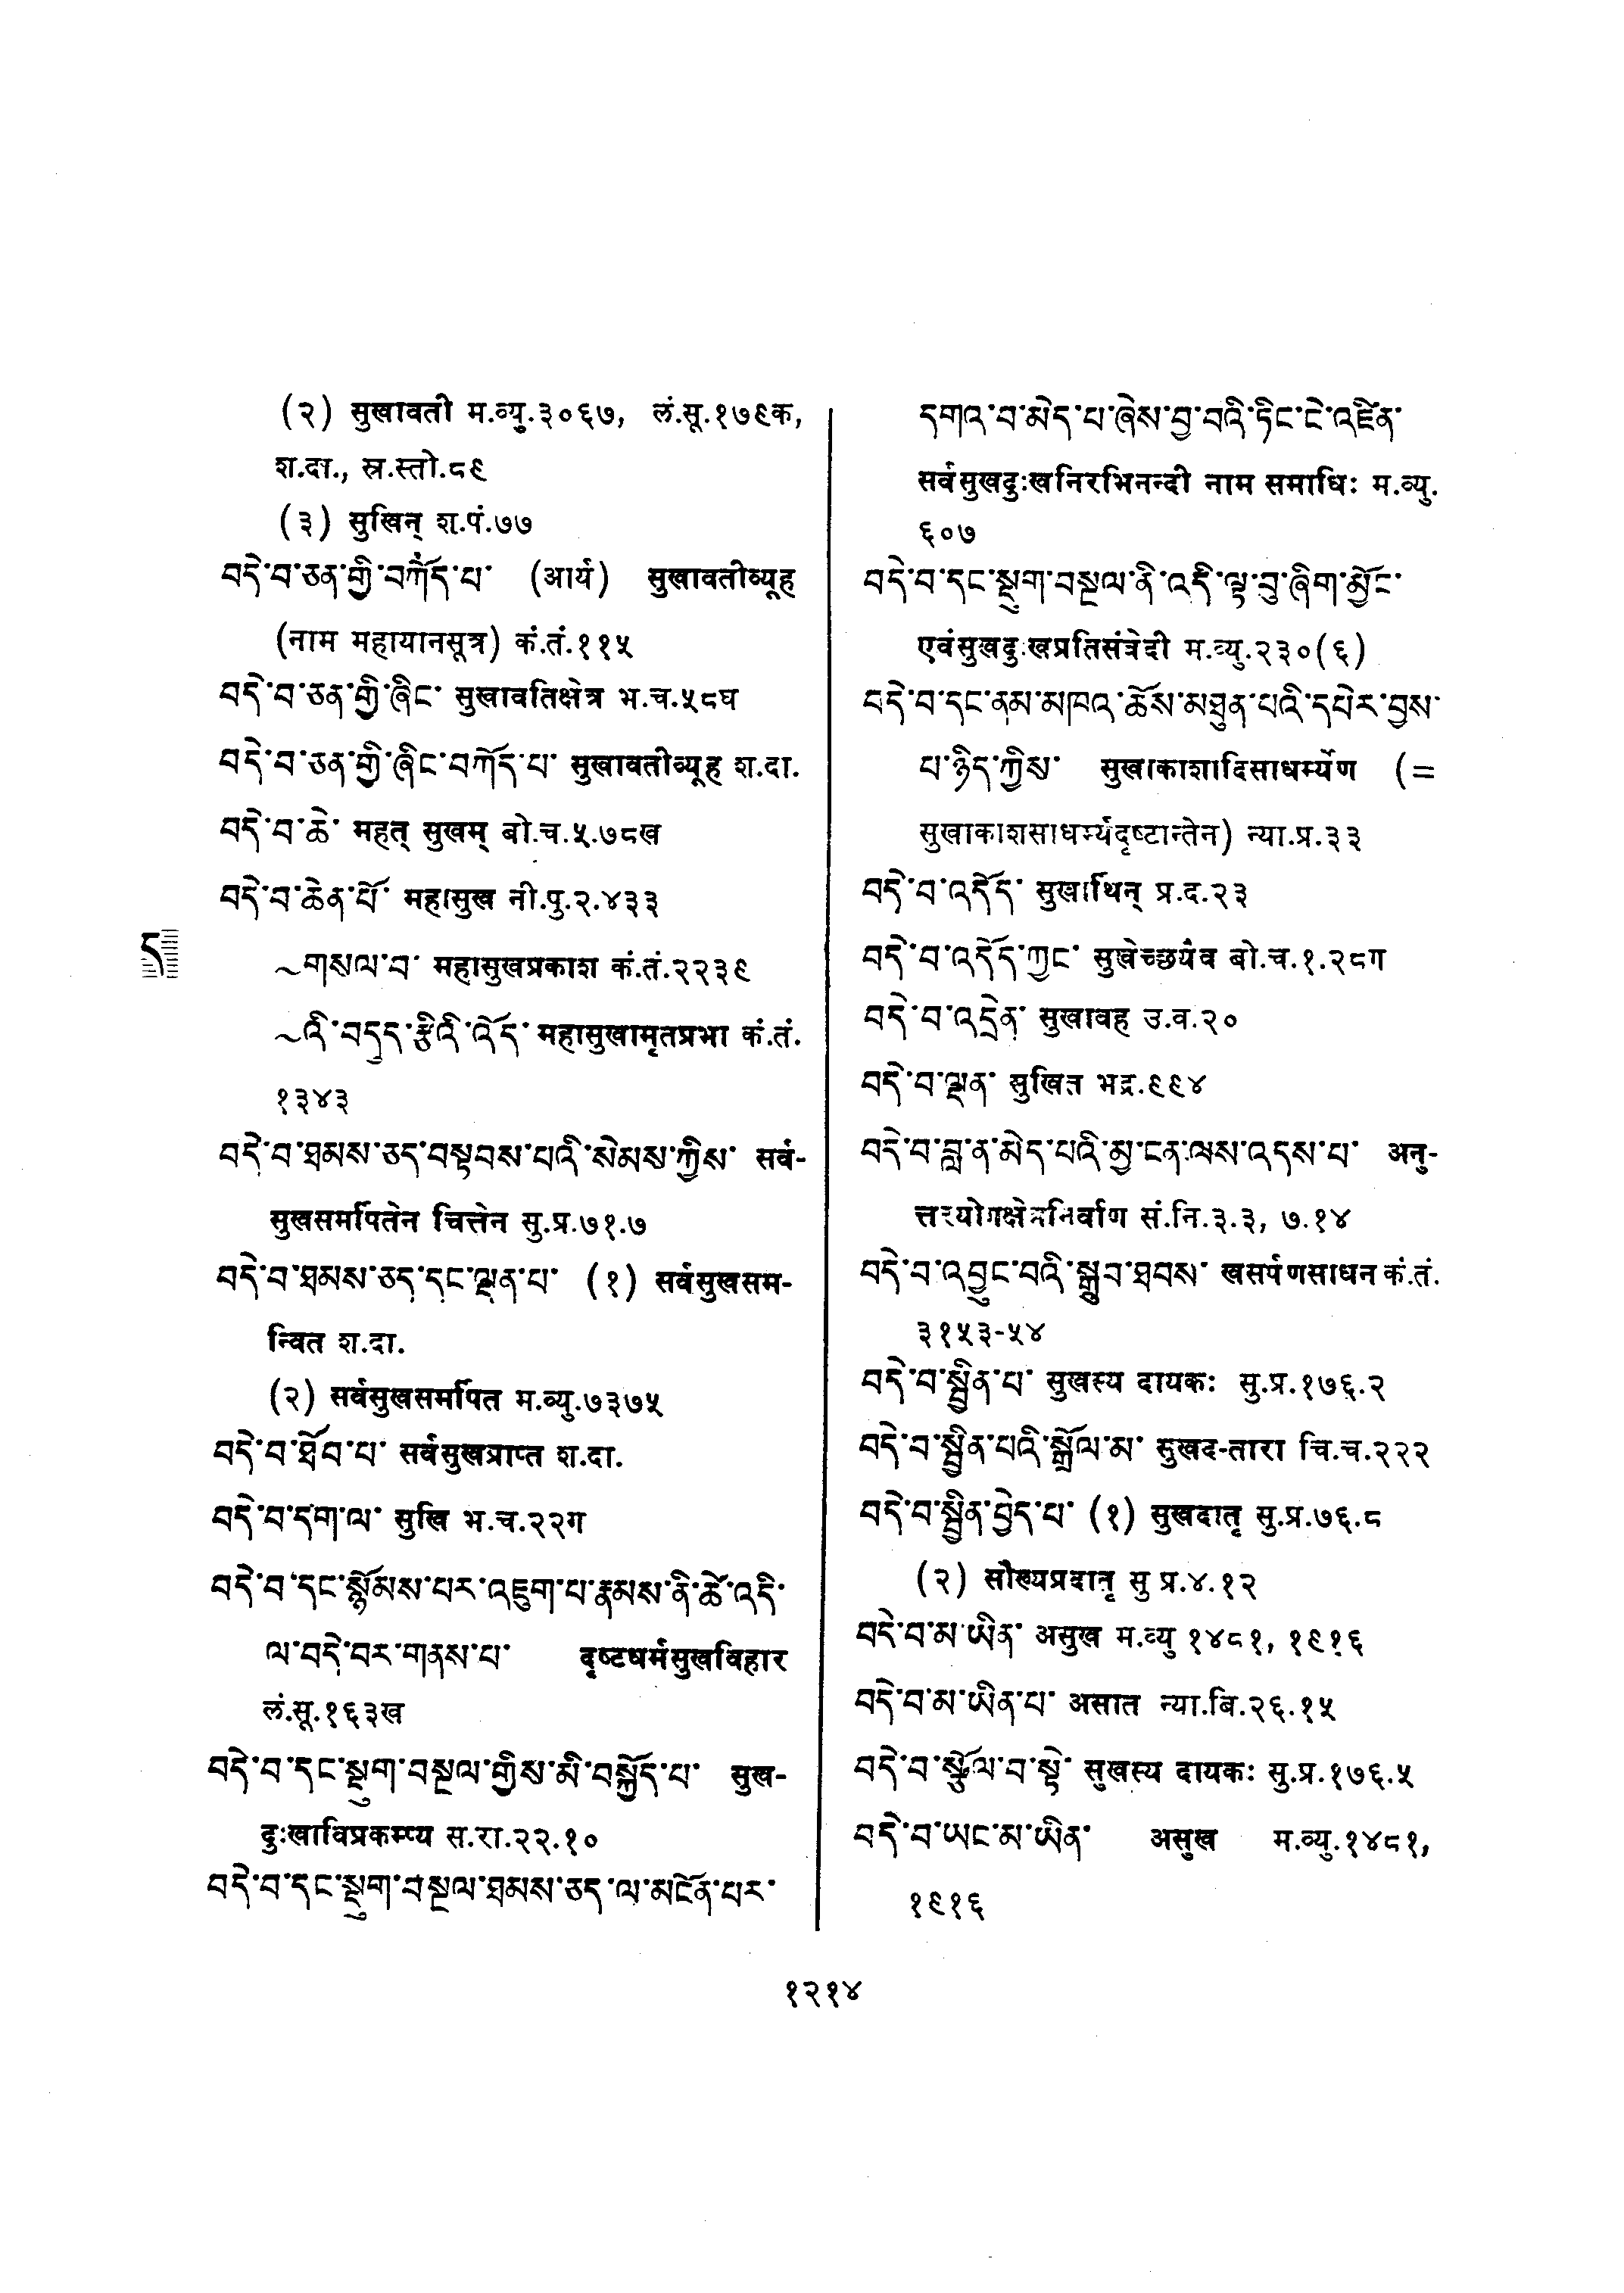 (२) सुखावती म.व्यु.३०६७, लं.सू.१७९क,
श.दा., स्र.स्तो.८९
(३) सुखिन् श.पं.७७
བདེ་བ་ཅན་གྱི་བཀོད་པ་ (आर्य) सुखावतीव्यूह
(नाम महायानसूत्र) कं.तं.११५
བདེ་བ་ཅན་གྱི་ཞིང་ सुखावतिक्षेत्र भ.च.५८घ
བདེ་བ་ཅན་གྱི་ཞིང་བཀོད་པ་ सुखावतीव्यूह श.दा.
བདེ་བ་ཆེ་ महत् सुखम् बो.च.५.७८ख
བདེ་བ་ཆེན་པོ་ महासुख नी.पु.२.४३३
~གསལ་བ་ महासुखप्रकाश कं.तं.२२३९
~འི་བདུད་རྩིའི་འོད་ महासुखामृतप्रभा कं.तं.
१३४३
བདེ་བ་ཐམས་ཅད་བསྟབས་པའི་སེམས་ཀྱིས་ सर्व-
सुखसमर्पितेन चित्तेन सु.प्र.७१.७
བདེ་བ་ཐམས་ཅད་དང་ལྡན་པ་ (१) सर्वसुखसम-
न्वित श.दा.
(२) सर्वसुखसमर्पित म.व्यु.७३७५
བདེ་བ་ཐོབ་པ་ सर्वसुखप्राप्त श.दा.
བདེ་བ་དག་ལ་ सुखि भ.च.२२ग
བདེ་བ་དང་སྙོམས་པར་འཇུག་པ་རྣམས་ནི་ཚེ་འདི་
ལ་བདེ་བར་གནས་པ་ दृष्टधर्मसुखविहार
लं.सू.१६३ख
བདེ་བ་དང་སྡུག་བསྔལ་གྱིས་མི་བསྐྱོད་པ་ सुख-
दुःखाविप्रकम्प्य स.रा.२२.१०
བདེ་བ་དང་སྡུག་བསྔལ་ཐམས་ཅད་ལ་མངོན་པར་
ད
དགའ་བ་མེད་པ་ཞེས་བྱ་བའི་ཏིང་ངེ་འཛིན་
सर्वसुखदुःखनिरभिनन्दी नाम समाधिः म.व्यु.
६०७
བདེ་བ་དང་སྡུག་བསྔལ་ནི་འདི་ལྟ་བུ་ཞིག་མྱོང་
एवंसुखदुःखप्रतिसंवेदी म.व्यु.२३०(६)
བདེ་བ་དང་ནམ་མཁའ་ཆོས་མཐུན་པའི་དཔེར་བྱས་
པ་ཉིད་ཀྱིས་ सुखाकाशादिसाधर्म्येण (=
सुखाकाशसाधर्म्यदृष्टान्तेन) न्या.प्र.३३
བདེ་བ་འདོད་ सुखार्थिन् प्र.द.२३
བདེ་བ་འདོད་ཀྱང་ सुखेच्छयैव बो.च.१.२८ग
བདེ་བ་འདྲེན་ सुखावह उ.व.२०
བདེ་བ་ལྡན་ सुखित भद्र.९९४
བདེ་བ་བླ་ན་མེད་པའི་མྱ་ངན་ལས་འདས་པ་ अनु-
त्तरयोगक्षेमनिर्वाण सं.नि.३.३, ७.१४
བདེ་བ་འབྱུང་བའི་སྒྲུབ་ཐབས་ खसर्पणसाधन कं.तं.
३१५३-५४
བདེ་བ་སྦྱིན་པ་ सुखस्य दायकः सु.प्र.१७६.२
བདེ་བ་སྦྱིན་པའི་སྒྲོལ་མ་ सुखद-तारा चि.च.२२२
བདེ་བ་སྦྱིན་བྱེད་པ་ (१) सुखदातृ सु.प्र.७६.८
(२) सौख्यप्रदातृ सु प्र.४.१२
བདེ་བ་མ་ཡིན་ असुख म.व्यु १४८१, १९१६
བདེ་བ་མ་ཡིན་པ་ असात न्या.बि.२६.१५
བདེ་བ་སྩོལ་བ་སྟེ་ सुखस्य दायकः सु.प्र.१७६.५
བདེ་བ་ཡང་མ་ཡིན་ असुख म.व्यु.१४८१,
१९१६
१२१४